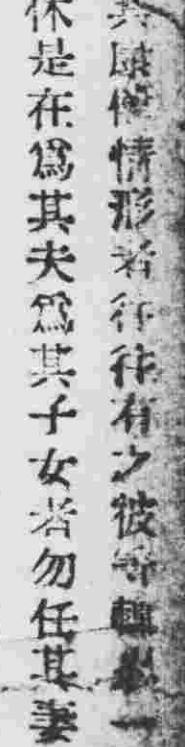 情形者往往有之彼等轉
休是在爲其夫爲其子女者勿任其妻